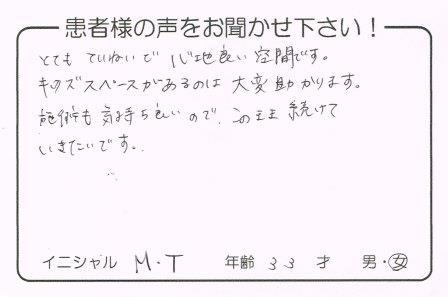 患者様の声をお聞かせ下さい！
とても ていねいで 心地良い 空間です。
キッズスペースがあるのは 大変助かります。
施術も 気持ち良いので、このまま 続けて
いきたいです。
イニシャル M・T 年齢 33 才 男・女